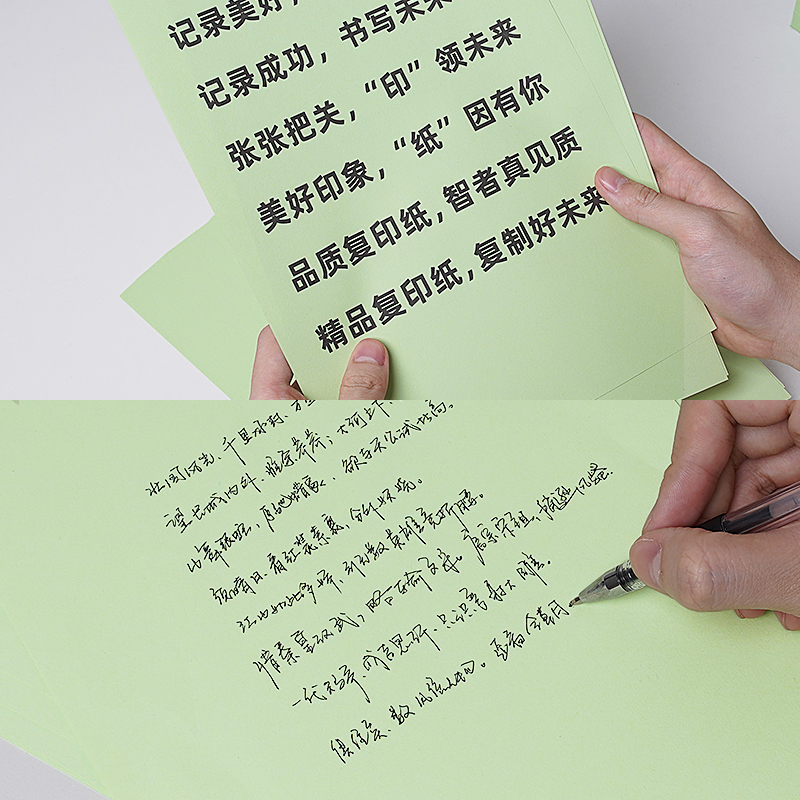 记录美好，
记录成功，书写未来
张张把关，“印”领未来
美好印象，“纸”因有你
品质复印纸，智者真见质
精品复印纸，复制好未来
北国风光，千里冰封，万里
望长城内外，惟余莽莽；大河上下，
山舞银蛇，原驰蜡象，欲与天公试比高。
须晴日，看红装素裹，分外妖娆。
江山如此多娇，引无数英雄竞折腰。
惜秦皇汉武，略输文采。唐宗宋祖，稍逊风骚。
一代天骄，成吉思汗，只识弯弓射大雕。
俱往矣，数风流人物，还看今朝